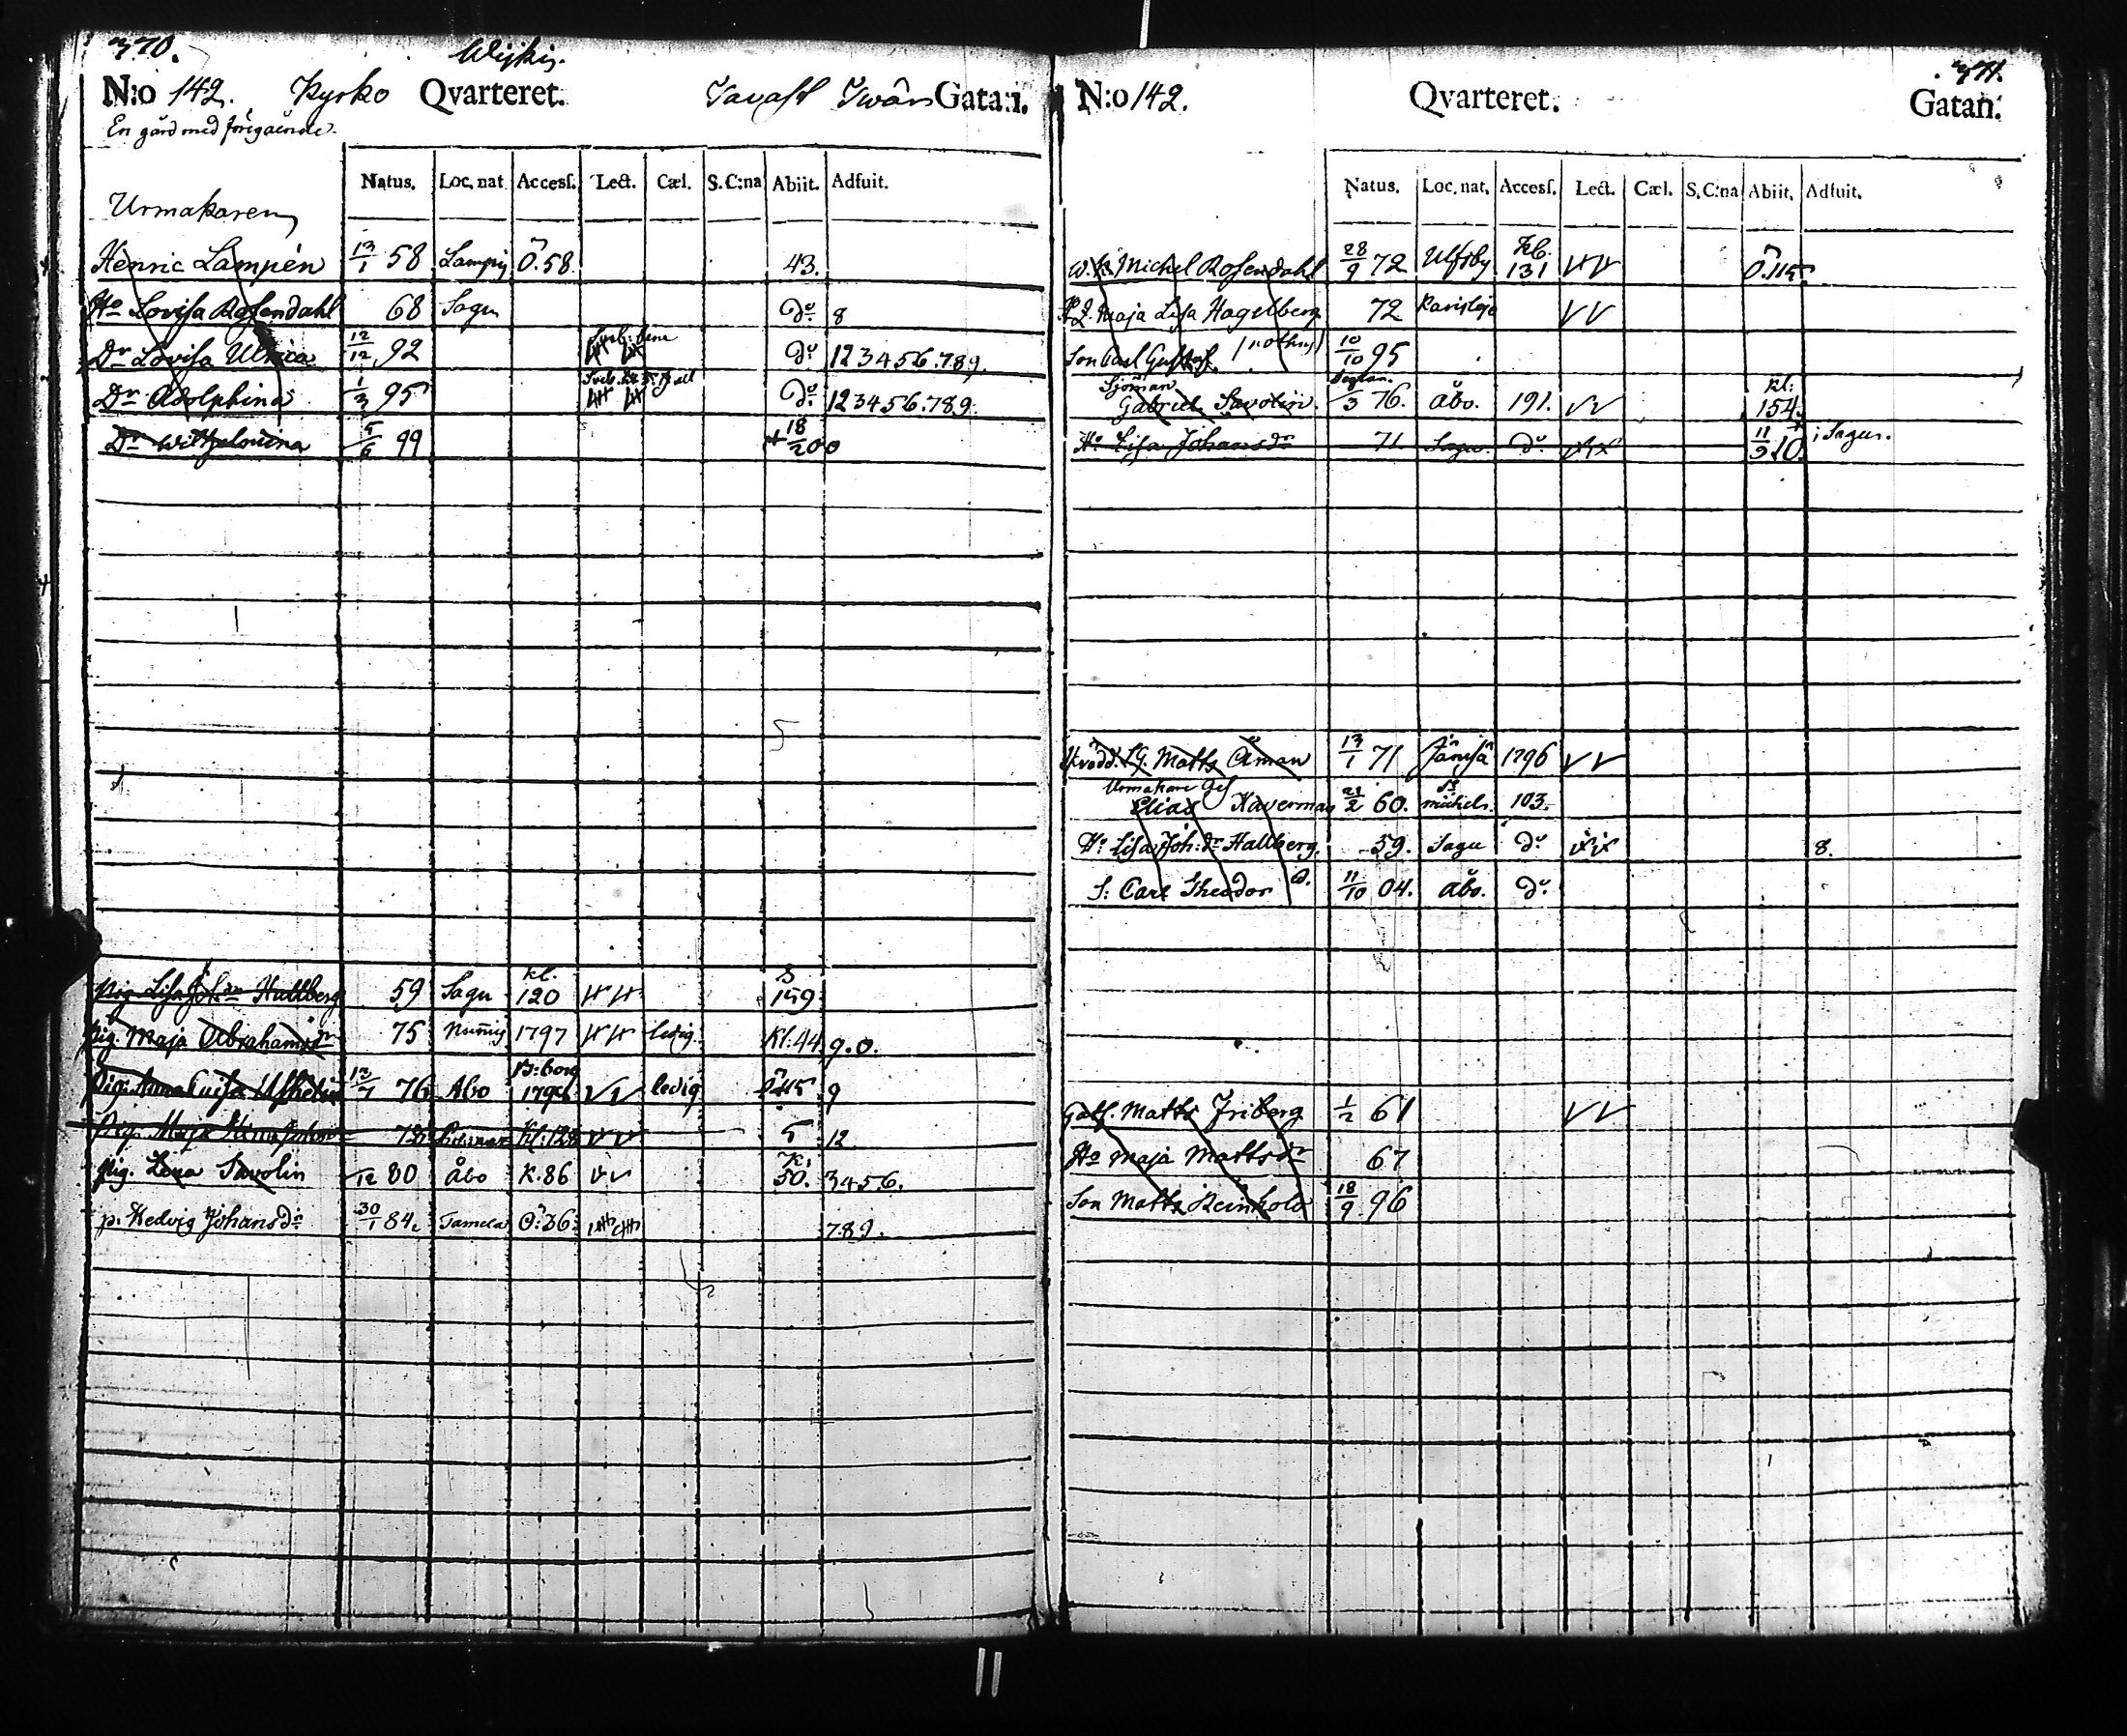 370.
Wijkis.
N:o 142. Kyrko Qvarteret. Tavast Twärs Gatan.
En gård med föregående.
Natus. Loc. nat. Access. Lect. Cæl. S. C:na Abiit. Adfuit.
Urmakaren
Henric Lampén 13/1 58 Lampis Ö. 58. 43.
Ho Lovisa Rosendahl 68 Sagu do 8
Dr Lovisa Ulrica 12/12 92 do 123456.789.
Dr Adolphina 1/3 95 do 123456.789.
Dr Wilhelmina 5/6 99 + 18/2 00
pig. Lisa Joh. dr Hallberg 59 Sagu kl. 120 159.
pig. Maja Abrahamsdr 75 1797 ledig. Kl:44. 9.0.
Pig. Anna Cuisa 12/7 76 Abo B:borg ledig Ö 45. 9
Pig. Maja Kl:128 5 12
pig. Lena Savolin /12 80 Åbo K. 86 K. 50. 3456.
p. Hedvig Johansdr 30/1 84. Tamela Ö:36: 789.
371.
N:o 142. Qvarteret. Gatan.
Natus. Loc. nat. Access. Lect. Cæl. S. C:na Abiit. Adfuit.
Michel Rosendahl 28/9 72 Ulfsby Kb. 131 Ö. 115
Maja Lisa Hagelberg 72 Karislojo
Son Carl Gustaf (nothus) 10/10 95
Sjöman
Gabriel Savolin. /3 76. Åbo. 191. kl: 154.
Ho Lisa Johansdr 71 Sagu. do 11/9 10. i Sagu.
Matts Åman 13/1 71 Jämsä 1796
Urmakare Ges
Elias Haverman 21/2 60. St michels. 103.
Ho Lisa Joh: dr Hallberg. 59. Sagu do 8.
S: Carl Theodor 11/10 04. Åbo. do
Matts Friberg 1/2 61
Ho Maja Mattsdr 67
Son Matts Reinhold 18/9 96